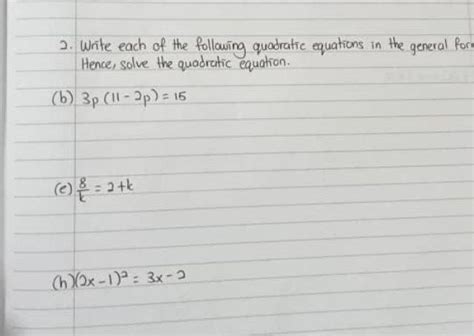 2. Write each of the following quadratic equations in the general for
Hence, solve the quadratic equation.
(b) 3p (11 - 2p) = 15
(e) 8/k = 2+k
(h) (2x - 1)² = 3x - 2